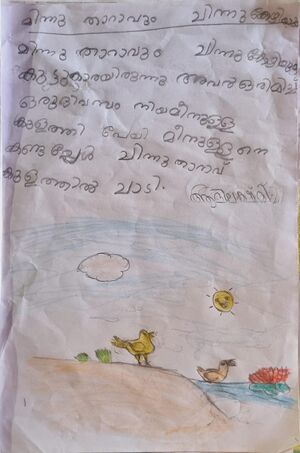 മിന്നു താറാവും ചിന്നുകോഴിയും
മിന്നു താറാവും ചിന്നുകോഴിയും
കൂട്ടുകാരായിരുന്നു അവർ ഒരുമിച്ച്
ഒരു ദിവസം
കുളത്തി പേയി മീനുള്ള
കണ്ടപ്പേൾ ചിന്നുതാറാവ്
കുളത്തിൽ ചാടി.